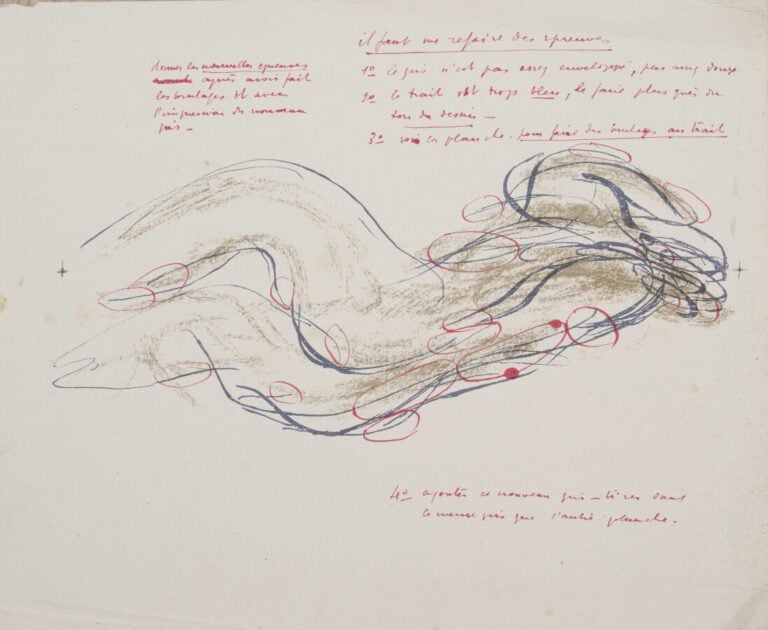 il faut me refaire des épreuves
donner les nouvelles épreuves
après avoir fait
les brulages et avec
l'impression du nouveau
gris –
1º le gris n'est pas assez enveloppé, pas assez doux
2º le trait est trop bleu, le faire plus gris du
ton du dessin –
3º la planche. pour faire des brulages au trait
4º ajouter ce nouveau gris – tirer dans
le meme gris que l'autre planche.